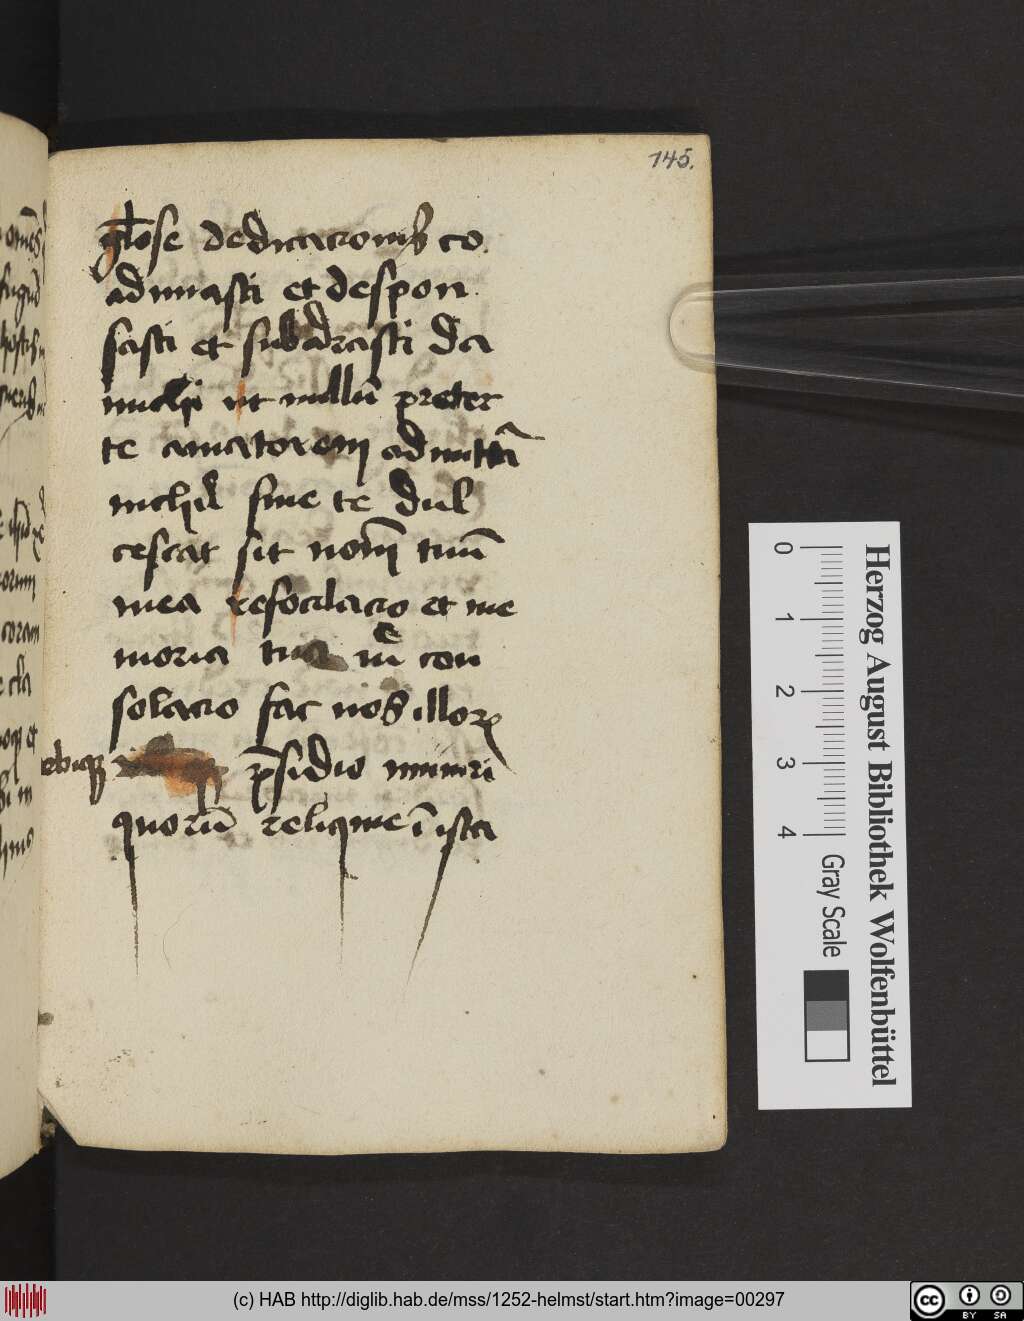 145.
gl̄ose dedicacionis co
adunasti et despon
sasti et subadrasti da
michi ut nullū preter
te amatorem admittā
nichil sine te dul
cescat sit nom̄ tuū
mea refocilacio et me
moria tua m̄ con
solacio fac nos illoꝝ
p̄sidio muniri
quorū reliquie ī ista
Herzog August Bibliothek Wolfenbüttel
0 1 2 3 4
Gray Scale
(c) HAB http://diglib.hab.de/mss/1252-helmst/start.htm?image=00297
cc BY SA